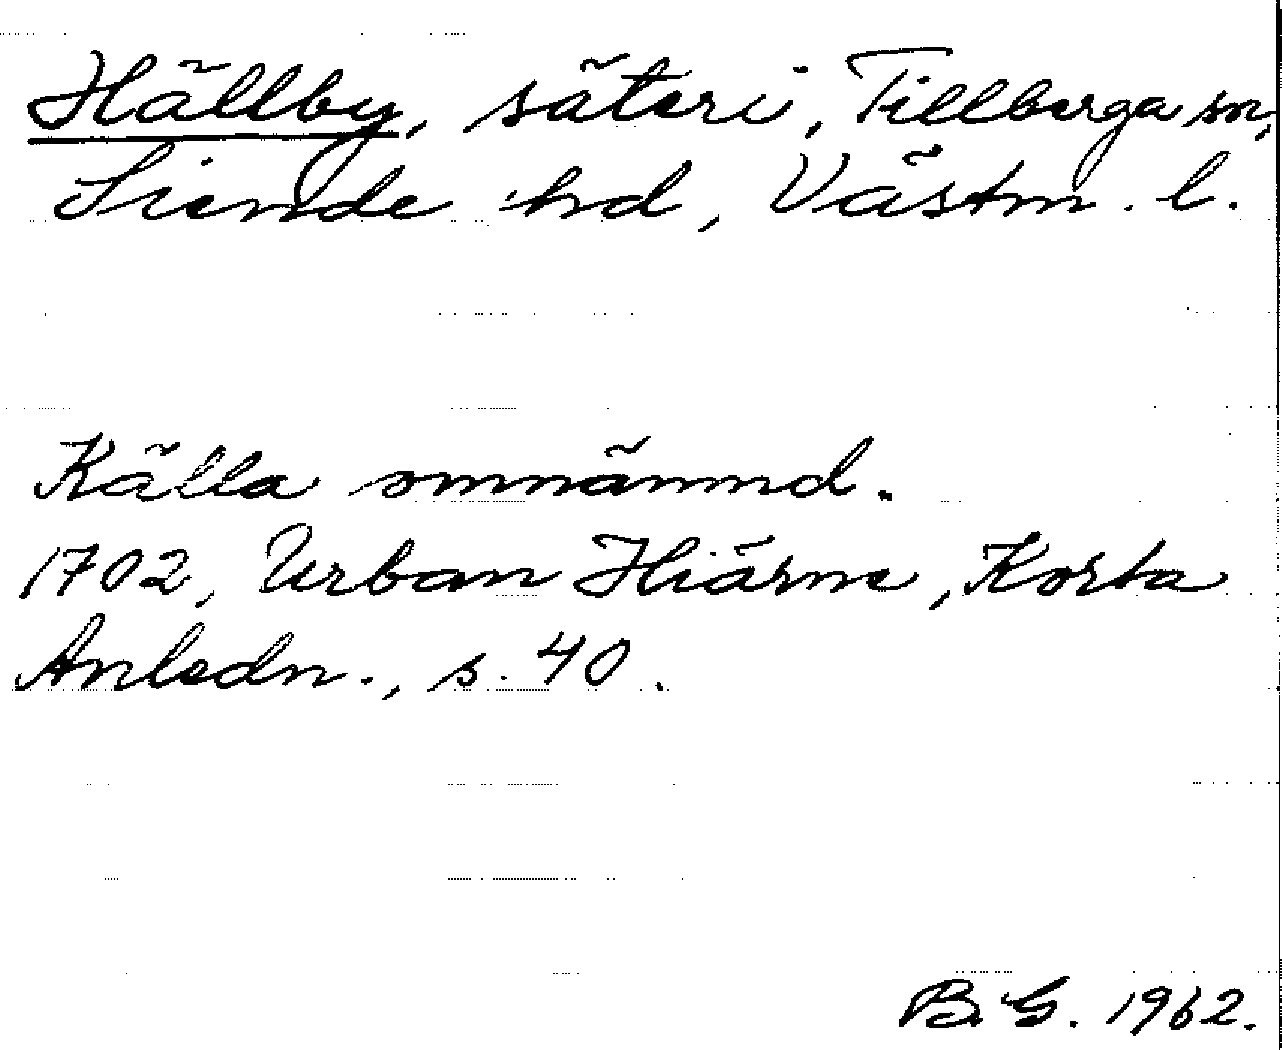 Hällby, säteri, Tillberga sn,
Siende hd, Västm. l.
Källa omnämnd.
1702, Urban Hiärne, Korta
Anledn., s. 40.
B.G. 1962.